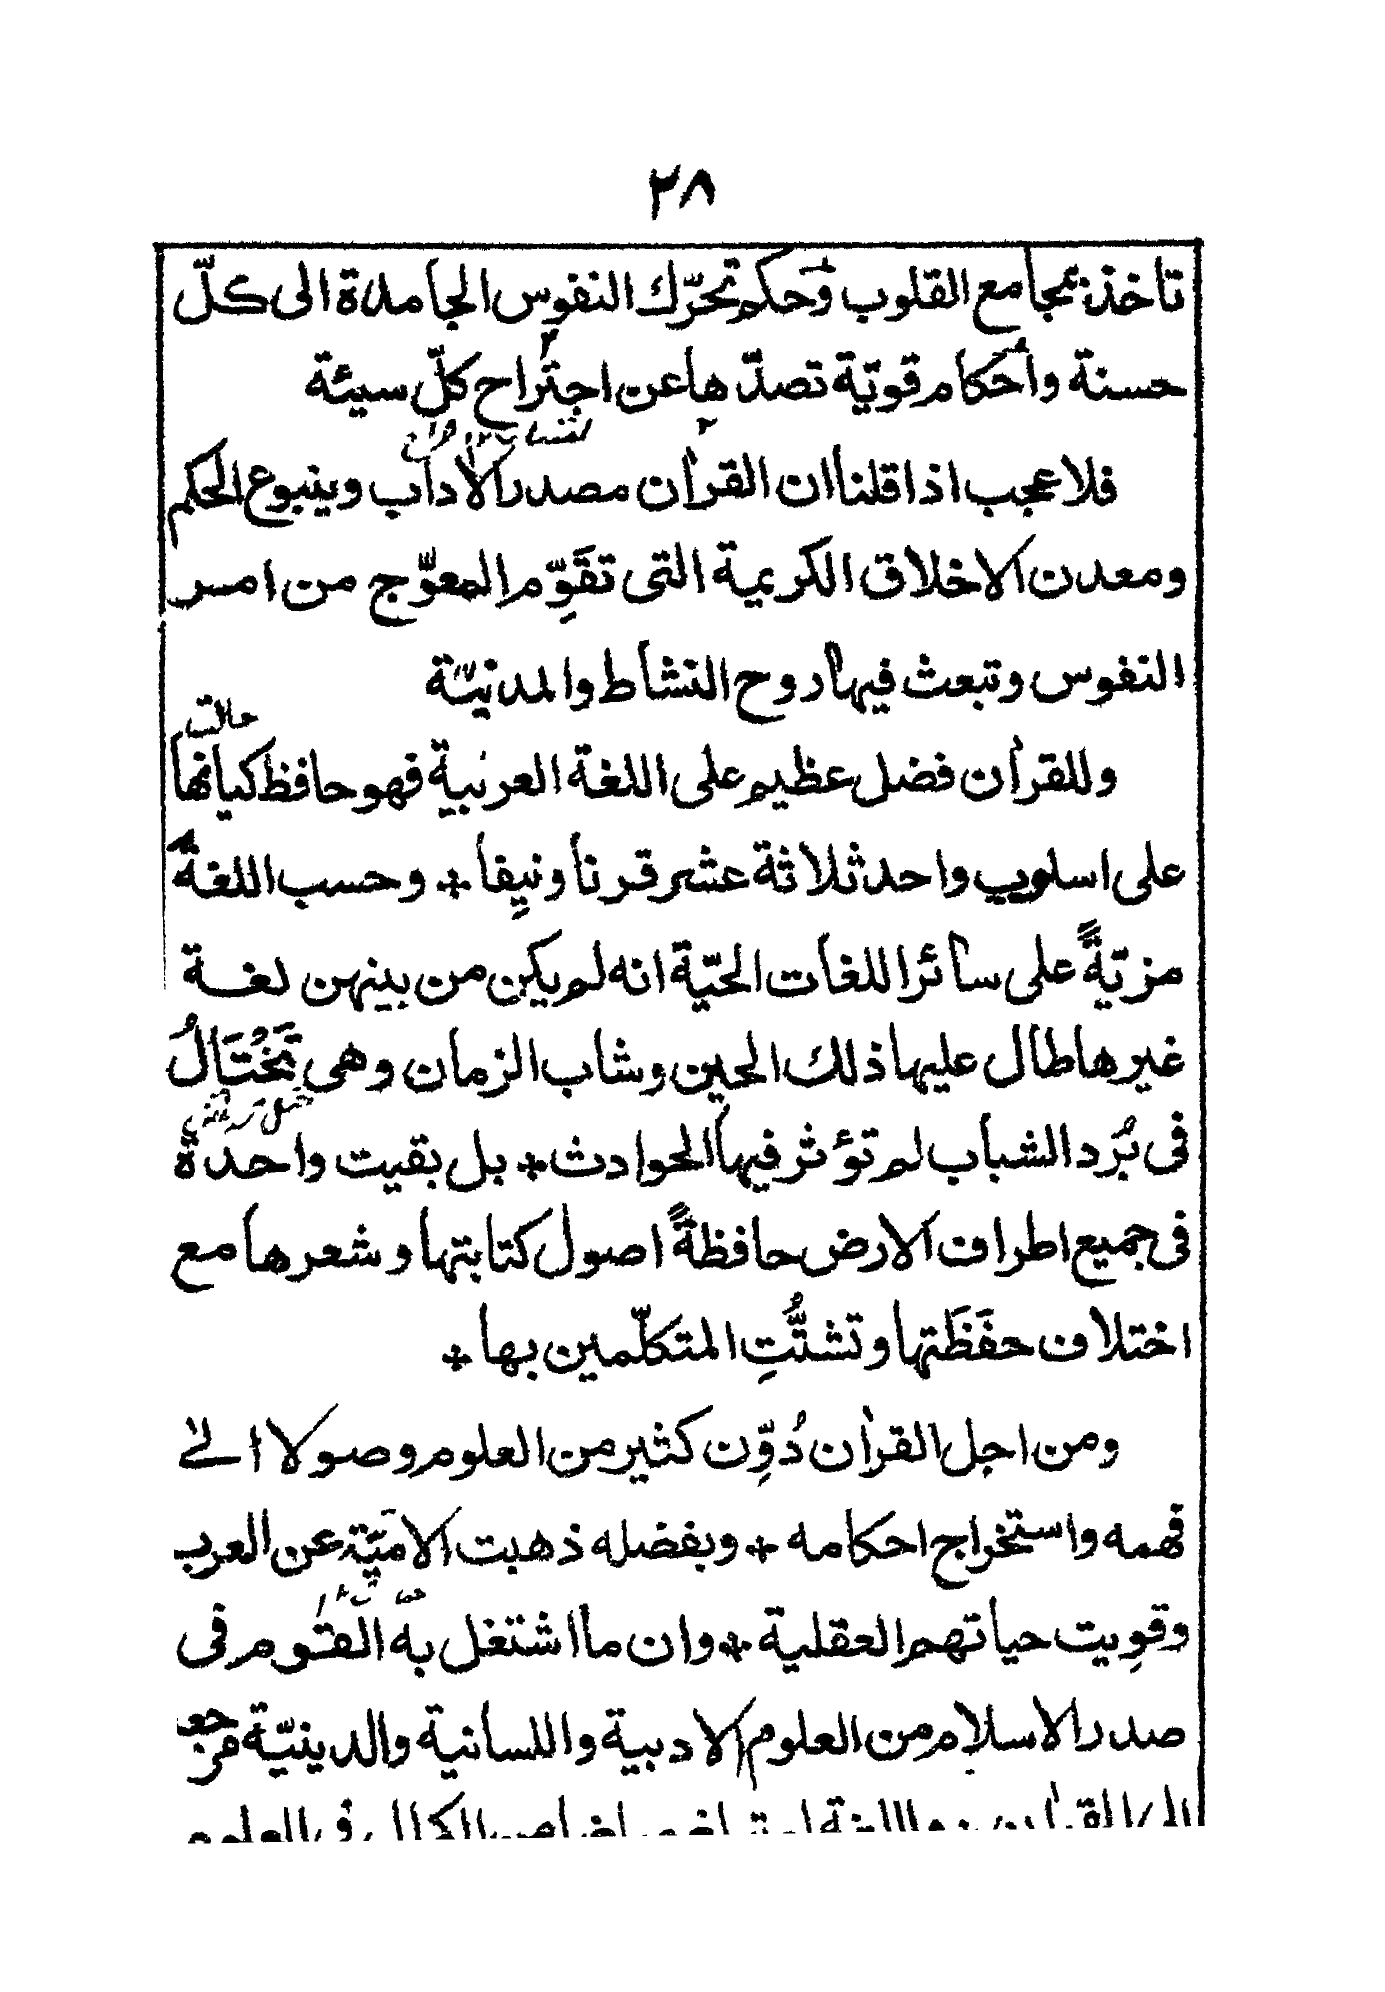 ٢٨
تأخذ بمجامع القلوب وحكم تحرّك النفوس الجامدة الى كلّ
حسنة وأحكام قويّة تصدّها عن اجتراح كلّ سيئة
فلا عجب اذا قلنا ان القرآن مصدر الآداب وينبوع الحكم
ومعدن الاخلاق الكريمية التى تقَوِّم المعوّج من امس
النفوس وتبعث فيها روح النشاط والمدنيّة
حالت
وللقرآن فضل عظيم على اللغة العربية فهو حافظ كيانها
على اسلوب واحد ثلاثة عشر قرنا ونيِفا ۞ وحسب اللغة
مزيّةً على سائر اللغات الحيّة انه لم يكن من بينهن لغة
غيرها طال عليها ذلك الحين وشاب الزمان وهى تَخْتَالُ
فى بُرد الشباب لم تؤثر فيها الحوادث ۞ بل بقيت واحدة
فى جميع اطراف الارض حافظةً اصول كتابتها وشعرها مع
اختلاف حفَظَتها وتشتُّتِ المتكلّمين بها ۞
ومن اجل القرآن دُوِّن كثير من العلوم وصولا الى
فهمه واستخراج احكامه ۞ وبفضله ذهبت الاميّة عن العرب
وقوِيت حياتهم العقلية ۞ وان ما اشتغل به القوم فى
صدر الاسلام من العلوم الادبية واللسانية والدينيّة مرجعه